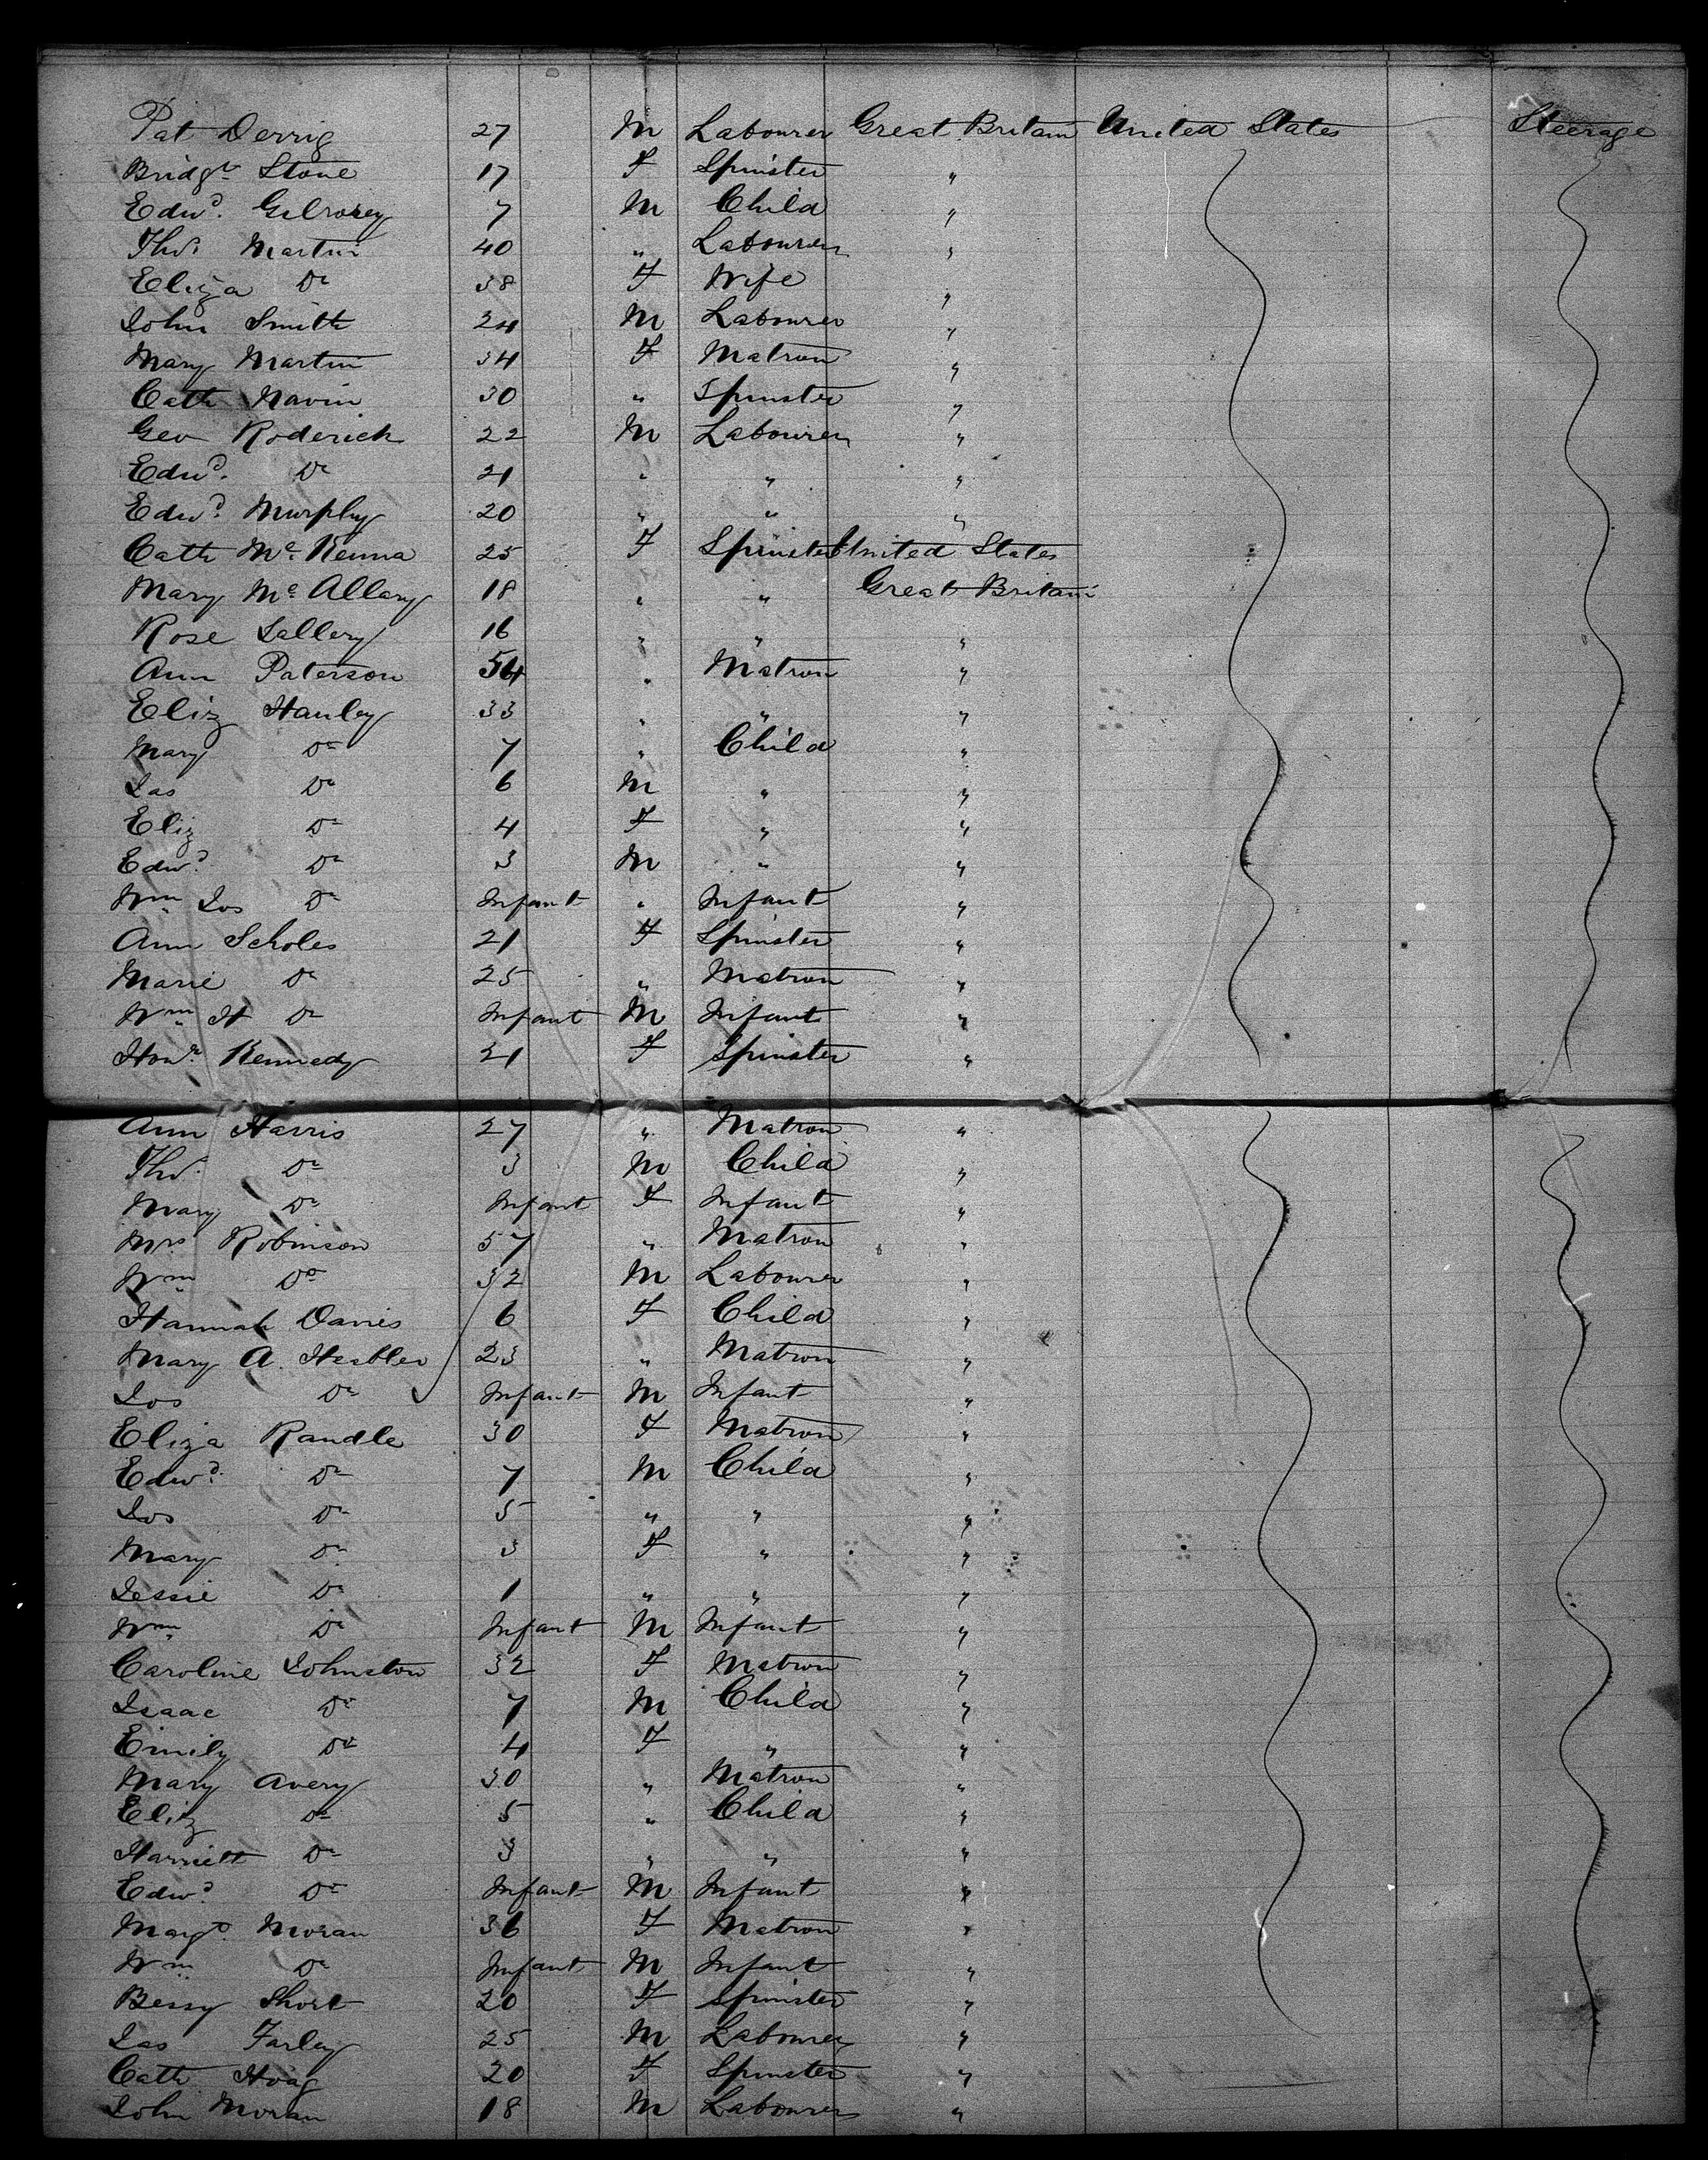 Pat Derrig 27 M Labourer Great Britain United States Steerage
Bridgt Stone 17 F Spinster "
Edwd. Gilroey 7 M Child "
Thos Martin 40 " Labourer "
Eliza Do 38 F Wife "
John Smith 24 M Labourer "
Mary Martin 34 F Matron "
Cath Navin 30 " Spinster "
Geo Roderick 22 M Labourer "
Edwd. Do 21 " " "
Edwd. Murphy 20 " " "
Cath McKenna 25 F Spinster United States
Mary McAllary 18 " " Great Britain
Rose Lallery 16 " " "
Ann Paterson 54 " Matron "
Eliz Hanley 33 " " "
Mary Do 7 " Child "
Jas Do 6 M " "
Eliz Do 4 F " "
Edwd. Do 3 M " "
Wm Jos Do Infant " Infant "
Ann Scholes 21 F Spinster "
Marie Do 25 " Matron "
Wm H Do Infant M Infant "
Honr. Kennedy 21 F Spinster "
Ann Harris 27 " Matron "
Thos. Do 3 M Child "
Mary Do Infant F Infant "
Mrs Robinson 57 " Matron "
Wm Do 32 M Labourer "
Hannah Davies 6 F Child "
Mary A. 23 " Matron "
Jos Do Infant M Infant "
Eliza Randle 30 F Matron "
Edwd. Do 7 M Child "
Jos Do 5 " " "
Mary Do 3 F " "
Jessie Do 1 " " "
Wm Do Infant M Infant "
Caroline Johnston 32 F Matron "
Isaac Do 7 M Child "
Emily Do 4 F " "
Mary Avery 30 " Matron "
Eliz Do 5 " Child "
Harriett Do 3 " " "
Edwd. Do Infant M Infant "
Margt. Moran 36 F Matron "
Wm Do Infant M Infant "
Bessy Short 20 F Spinster "
Jas Farley 25 M Labourer "
Cath Hoag 20 F Spinster "
John Moran 18 M Labourer "